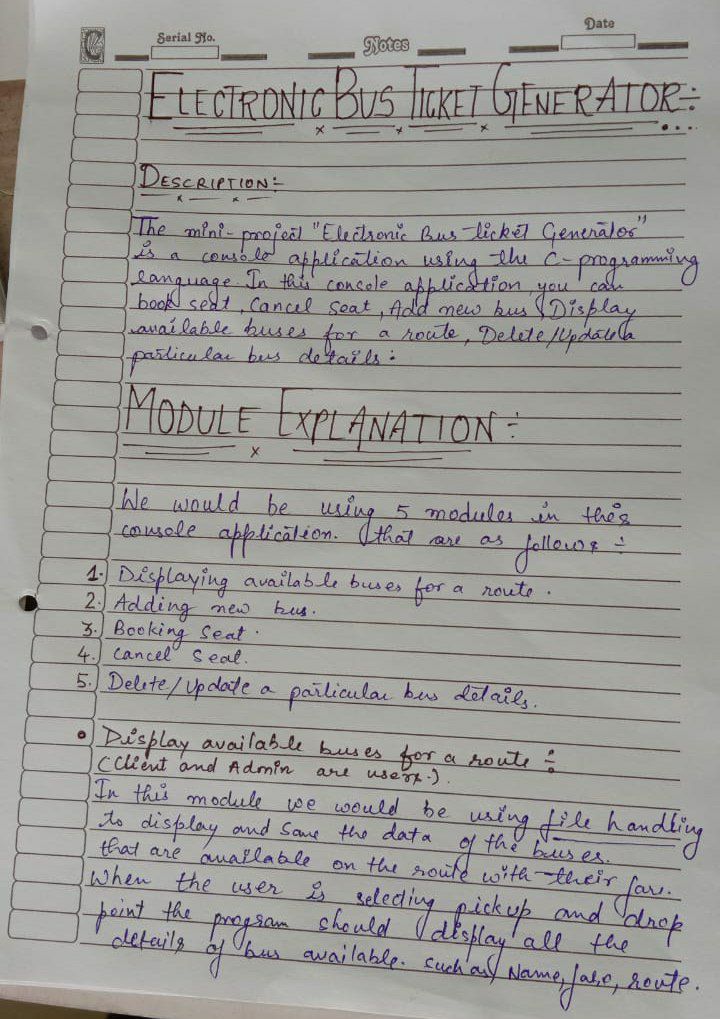 Serial No.
Notes
Date
ELECTRONIC BUS TICKET GENERATOR:-
DESCRIPTION:-
The mini-project "Electronic Bus ticket Generator"
is a console application using the C-programming
language. In this console application, you can
book seat, Cancel Seat, Add new bus, Display
available buses for a route, Delete/Update a
particular bus details:
MODULE EXPLANATION:-
We would be using 5 modules in this
console application. that are as follows:-
1. Displaying available buses for a route.
2. Adding new bus.
3. Booking Seat.
4. Cancel Seat.
5. Delete/Update a particular bus details.
• Display available buses for a route:-
(Client and Admin are users.).
In this module we would be using file handling
to display and Save the data of the buses.
that are available on the route with their fare.
When the user is selecting pickup and drop
point the program should display all the
details of bus available. Such as, Name, fare, route.